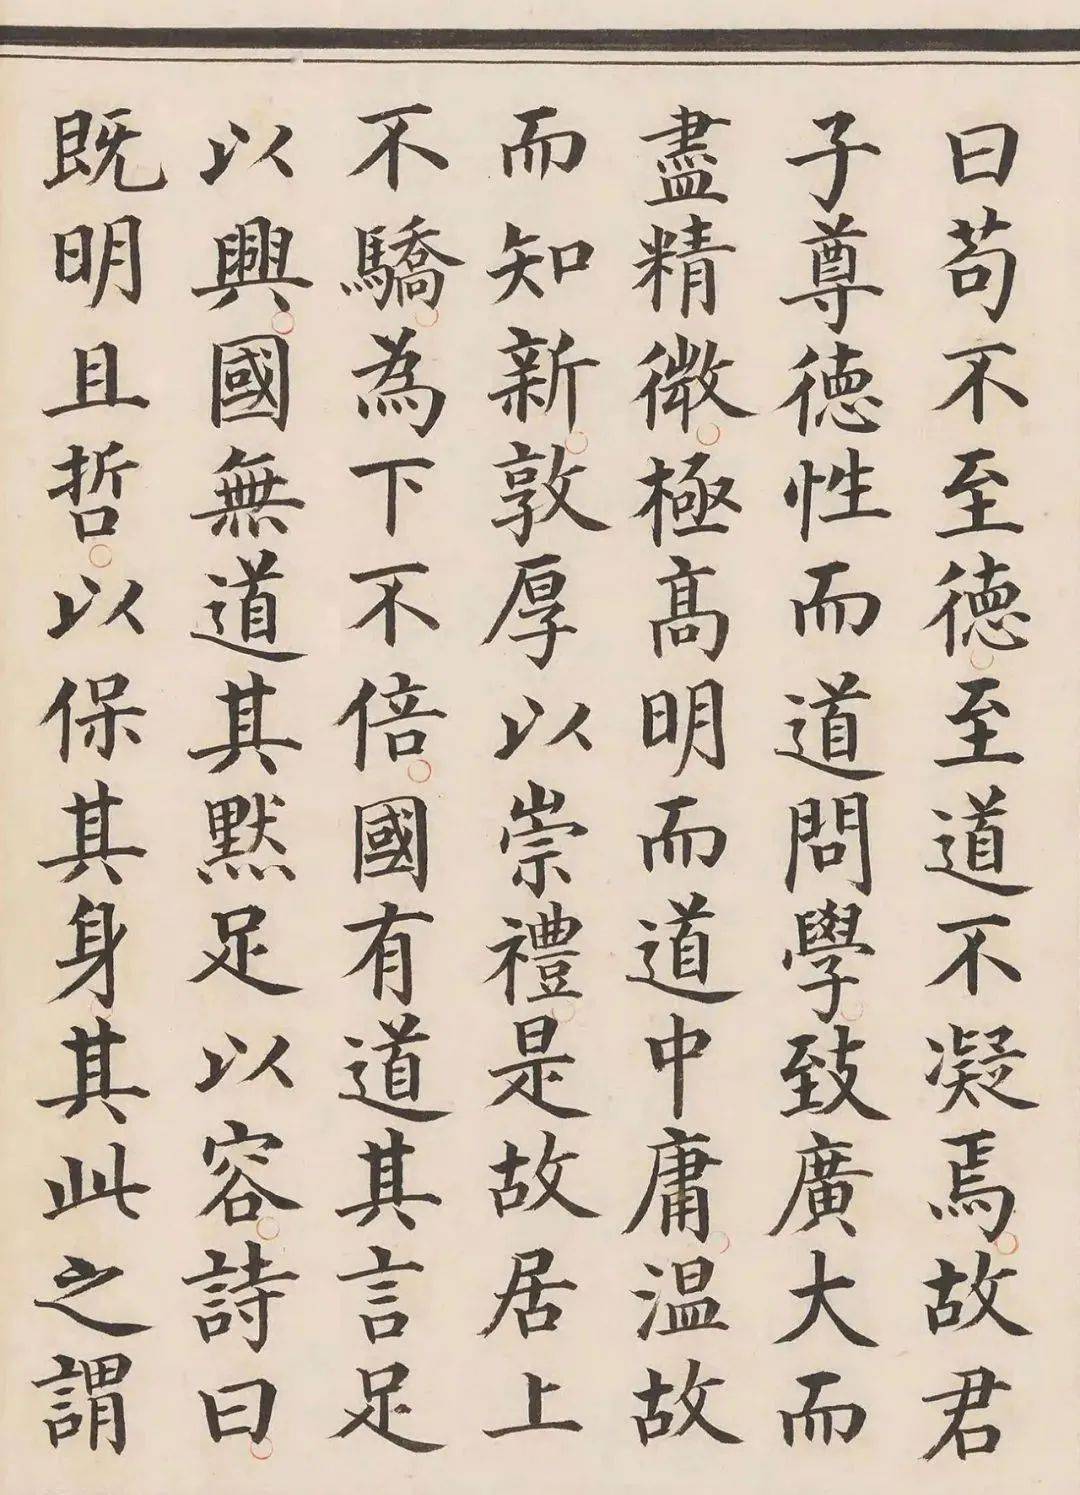 曰苟不至德至道不凝焉故君
子尊德性而道問學致廣大而
盡精微極高明而道中庸温故
而知新敦厚以崇禮是故居上
不驕為下不倍國有道其言足
以興國無道其默足以容詩曰
既明且哲以保其身其此之謂